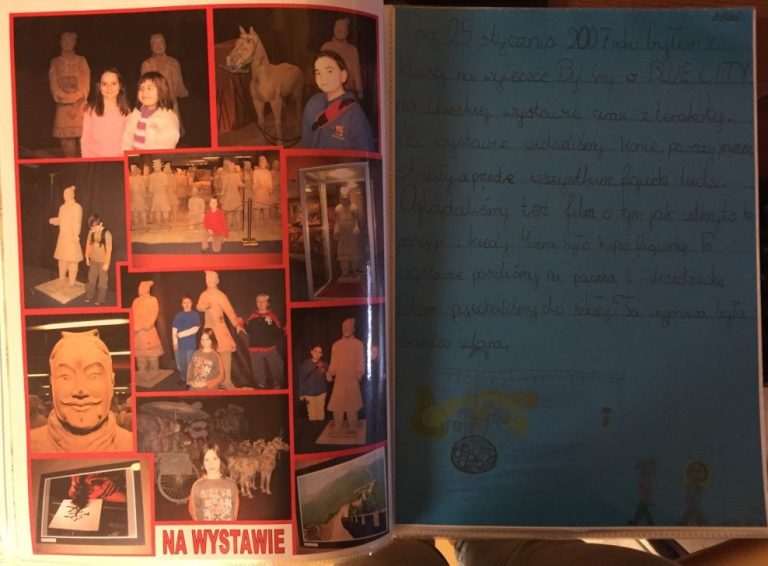 NA WYSTAWIE
Dnia 25 stycznia 2007 roku byłem z
klasą na wycieczce. Byliśmy w BLUE CITY
na Chińskiej wystawie armi z terakoty.
na wystawie widzieliśmy konie,
strzały, a przede wszystkim figurki ludzi.
Oglądaliśmy też film o tym jak odkryto te
posągi i kiedy. Można było kupić figurkę. Po
wystawie poszliśmy na pączka i drożdżówkę.
Potem pojechaliśmy do szkoły. Ta wyprawa była
bardzo udana.